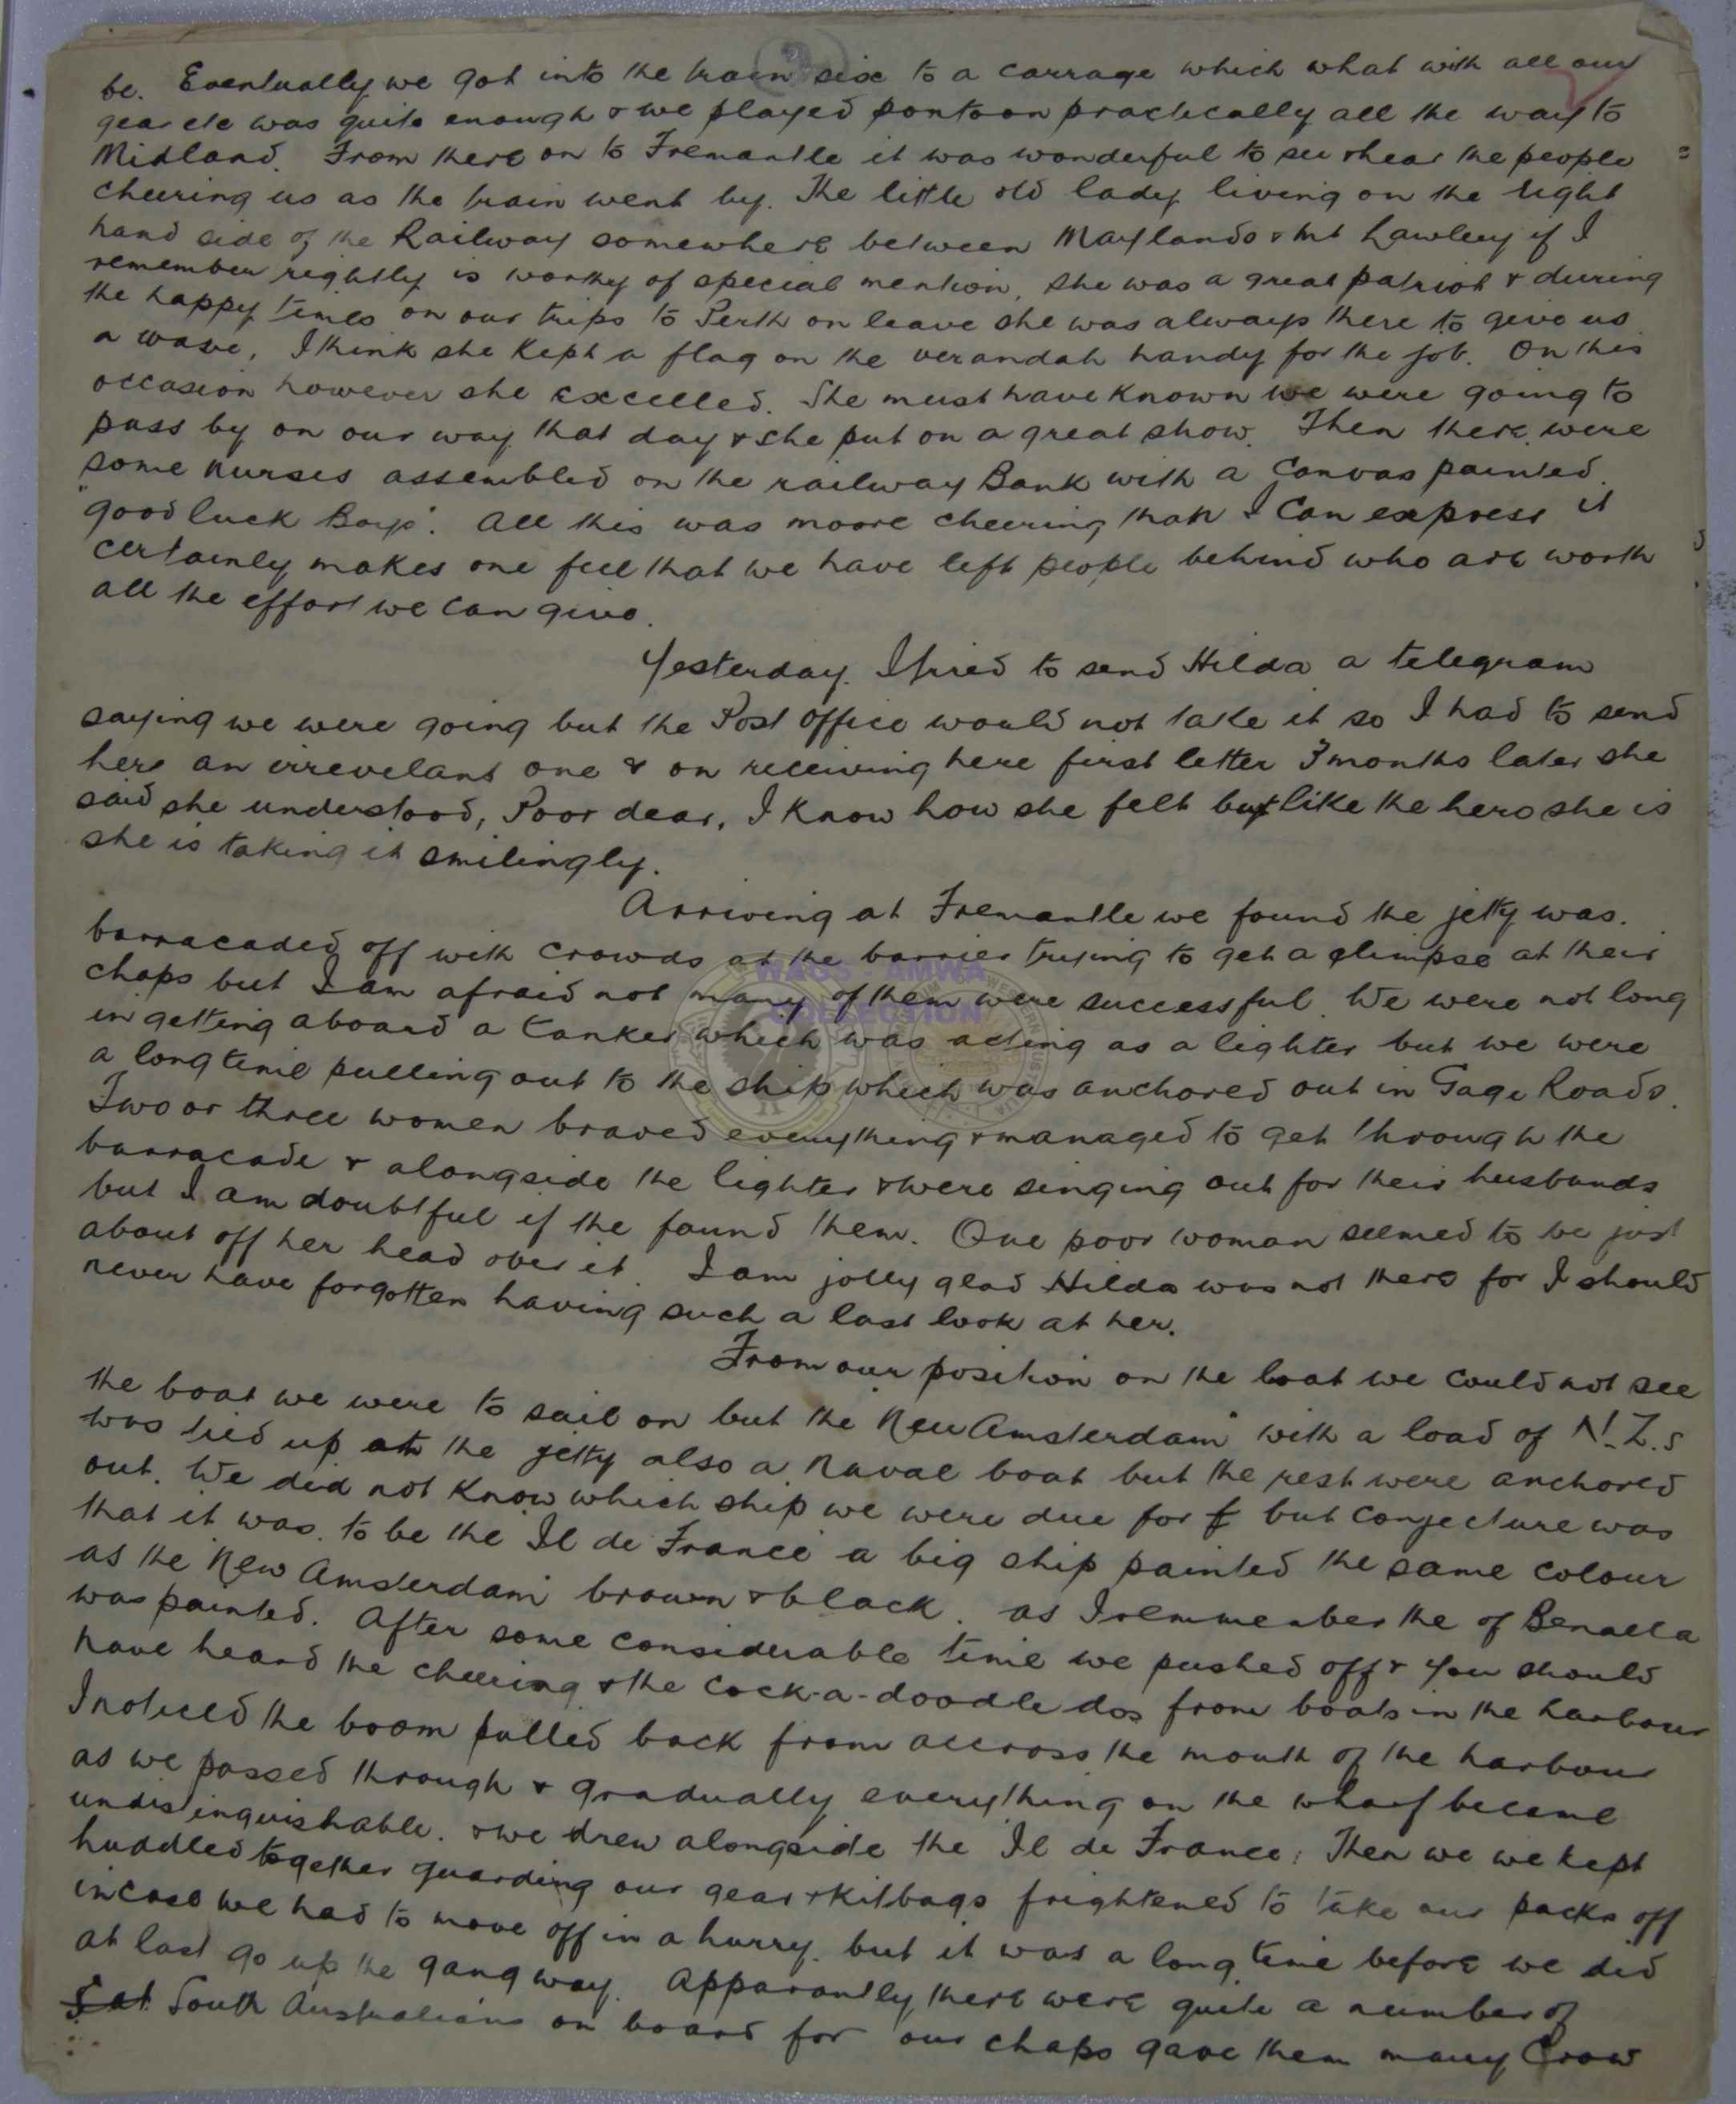 be. Eventually we got into the train six to a carrage which what with all our
gear etc was quite enough & we played pontoon practically all the way to
Midland. From there on to Fremantle it was wonderful to see & hear the people
cheering us as the train went by. The little old lady living on the right
hand side of the Railway somewhere between Maylands & Mt Lawley if I
remember rightly is worthy of special mention, she was a great patriot & during
the happy times on our trips to Perth on leave she was always there to give us
a wave, I think she kept a flag on the verandah handy for the job. On this
occasion however she excelled. She must have known we were going to
pass by on our way that day & she put on a great show. Then there were
some nurses assembled on the railway Bank with a canvas painted
"good luck Boys". All this was moore cheering than I can express it
certainly makes one feel that we have left people behind who are worth
all the effort we can give.
Yesterday I tried to send Hilda a telegram
saying we were going but the Post office would not take it so I had to send
here an irrevelant one & on receiving here first letter 3 months later she
said she understood, Poor dear, I know how she felt but like the hero she is
she is taking it smilingly.
Arriving at Fremantle we found the jetty was
barracaded off with crowds at the barrier trying to get a glimpse at their
chaps but I am afraid not many of them were successful. We were not long
in getting aboard a tanker which was acting as a lighter but we were
a long time pulling out to the ship which was anchored out in Gage Roads.
Two or three women braved everything & managed to get through the
barracade & alongside the lighter & were singing out for their husbands
but I am doubtful if the found them. One poor woman seemed to be just
about off her head over it. I am jolly glad Hilda was not there for I should
never have forgotten having such a last look at her.
From our position on the boat we could not see
the boat we were to sail on but the New Amsterdam" with a load of N.Z.s
was tied up at the jetty also a naval boat but the rest were anchored
out. We did not know which ship we were due for but conjecture was
that it was to be the Il de France a big ship painted the same colour
as the New Amsterdam brown & black. as I remmember the of Benalla
was painted. After some considerable time we pushed off & you should
have heard the cheering & the cock-a-doodle dos from boats in the harbour
I noticed the boom pulled back from accross the mouth of the harbour
as we passed through & gradually everything on the wharf became
undistinguishable. & we drew alongside the Il de France. Then we we kept
huddled together guarding our gear & kitbags frightened to take our packs off
incase we had to move off in a hurry. but it was a long time before we did
at last go up the gangway. Apparantly there were quite a number of
South Australians on board for our chaps gave them many Crow
WAGS - AMWA
COLLECTION